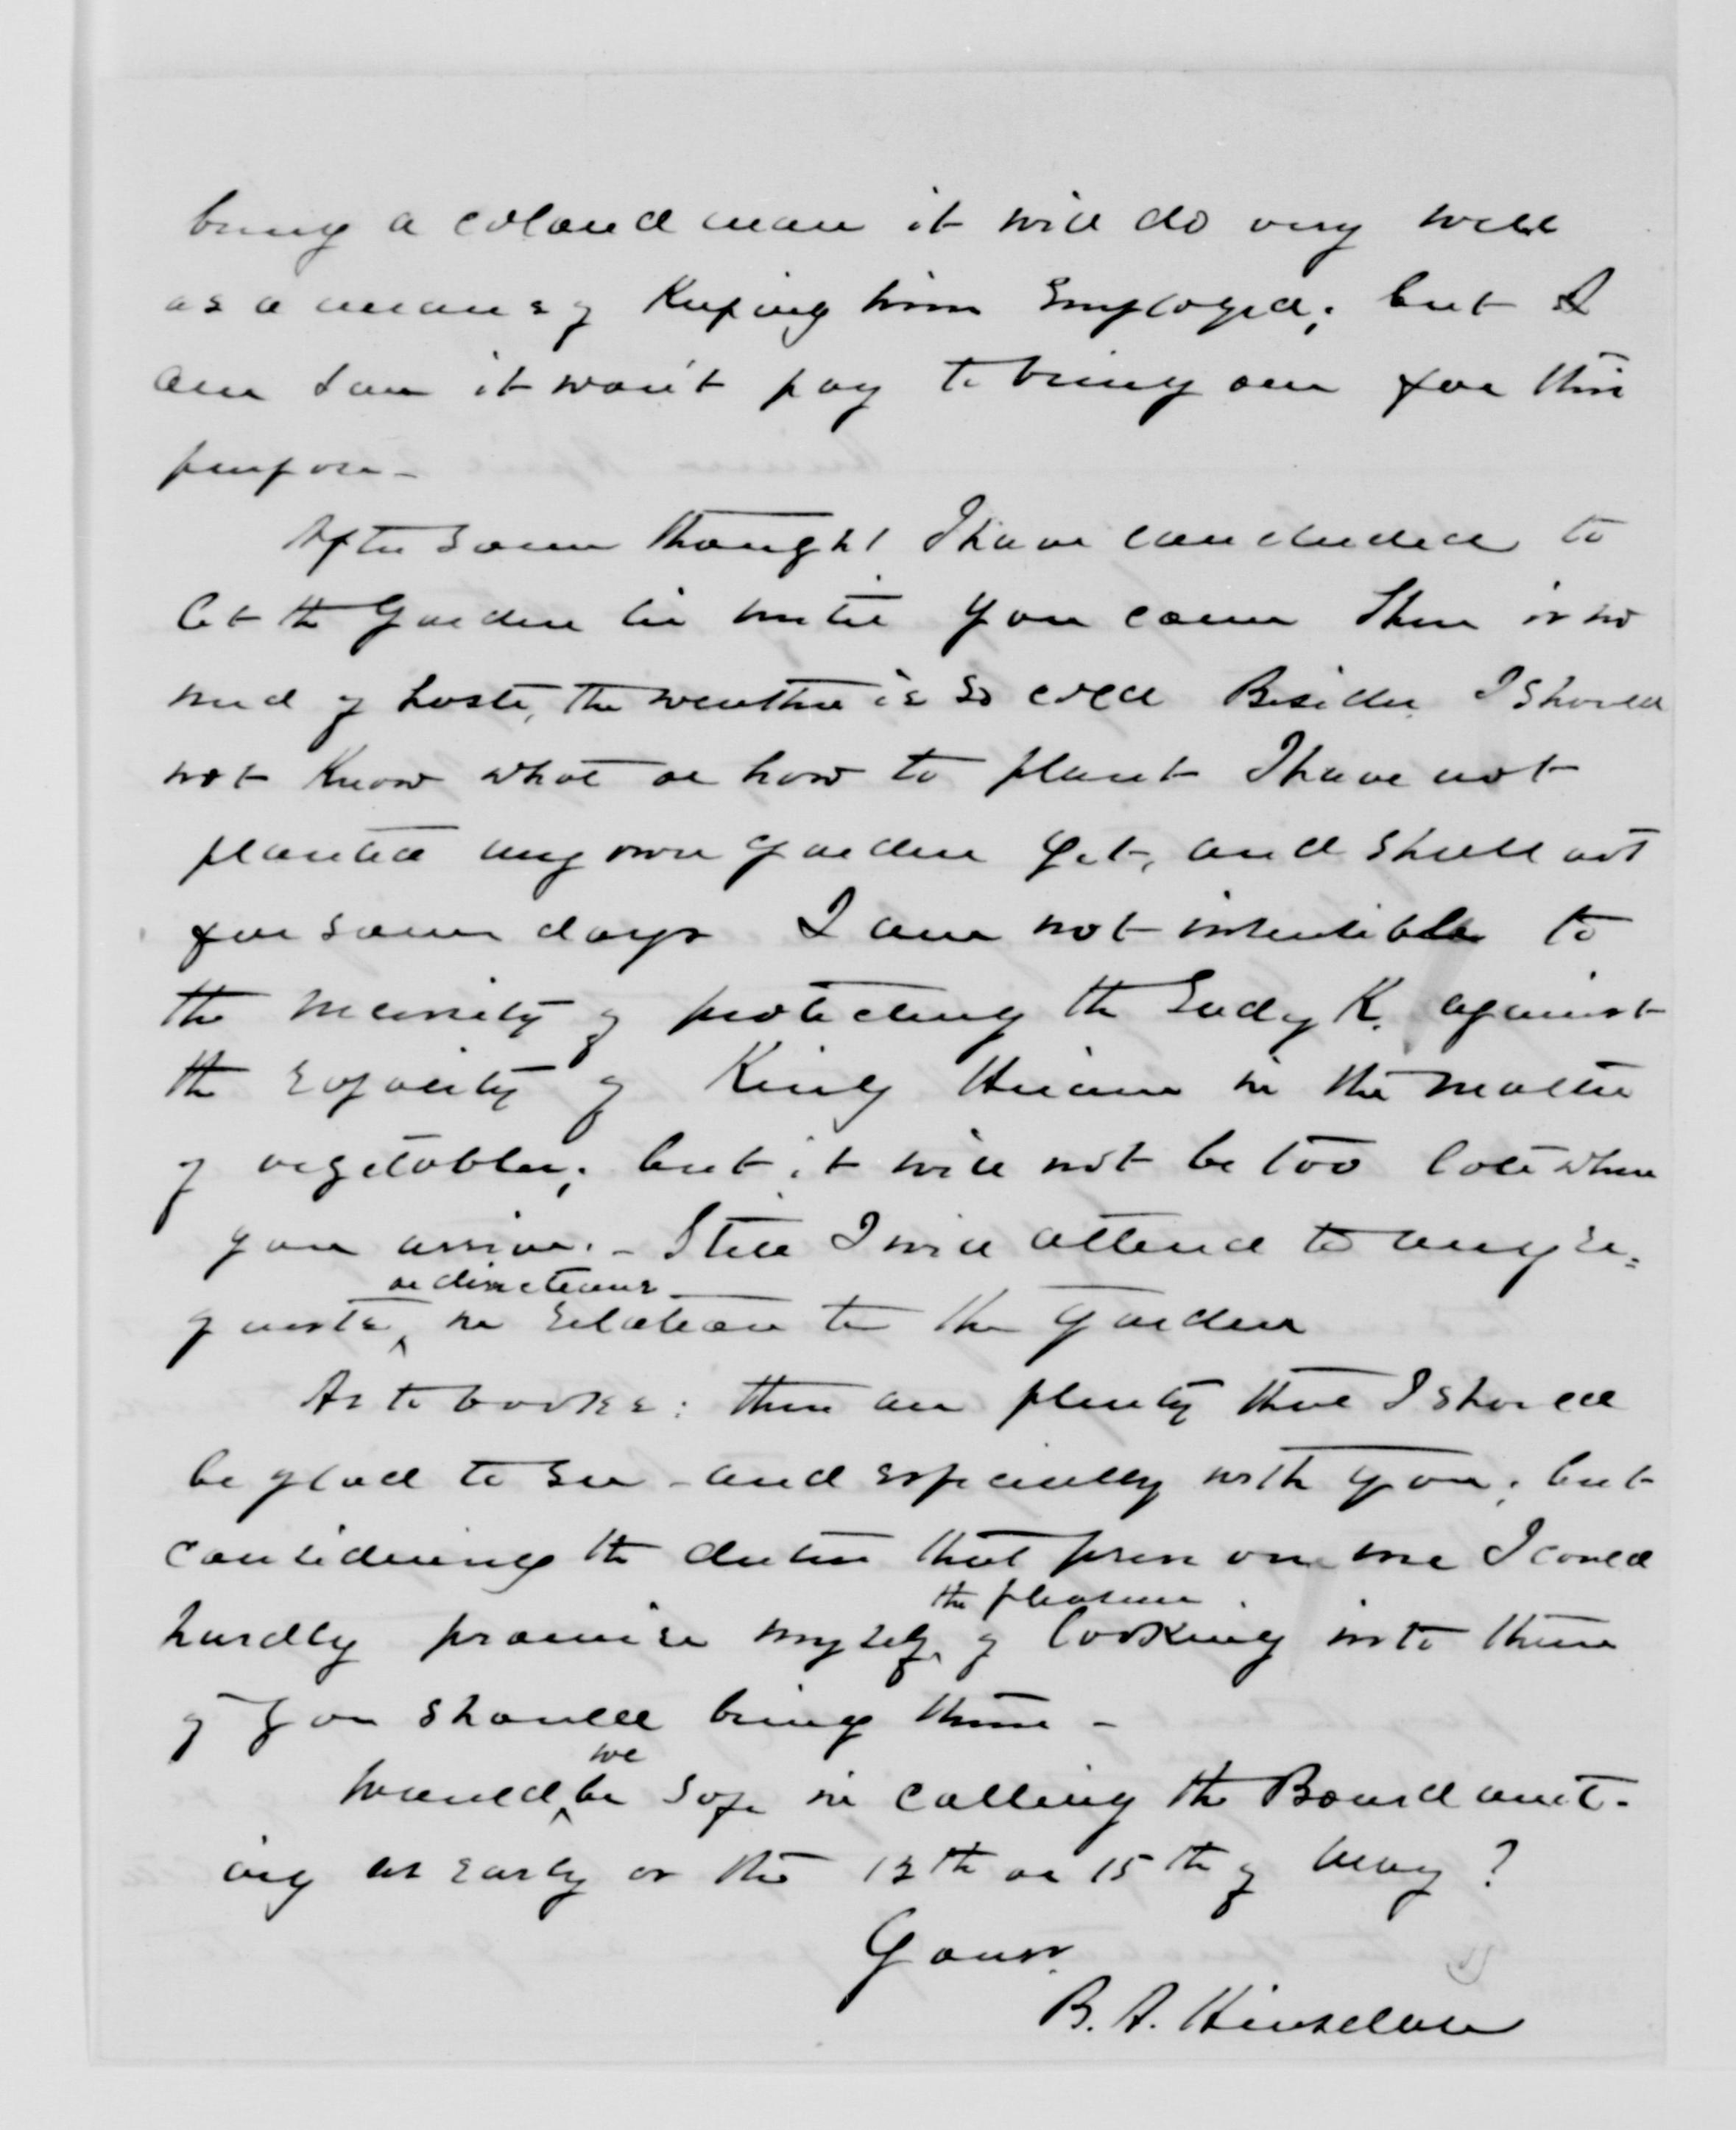 bring a colored man it will do very well
as a means of keeping him employed; but I
am sure it won't pay to bring one for this
purpose –
After some thought I have concluded to
let the Garden lie until you come There is no
need of haste, the weather is so cold Besides I should
not know what or how to plant I have not
planted my own garden yet, and shall not
for some days I am not insensible to
the necessity of protecting the Lady K. against
the rapacity of King Hiram in the matter
of vegetables; but it will not be too late when
you arrive. – Still I will attend to any re=
or directions
quests in relation to the garden
As to books: there are plenty that I should
be glad to see – and especially with you; but
considering the duties that press on me I could
the pleasure
hardly promise myself of looking into them
if you should bring them –
we
Would be safe in calling the Board meet-
ing as early as the 12th or 15th of May?
Yours
B. A. Hinsdale